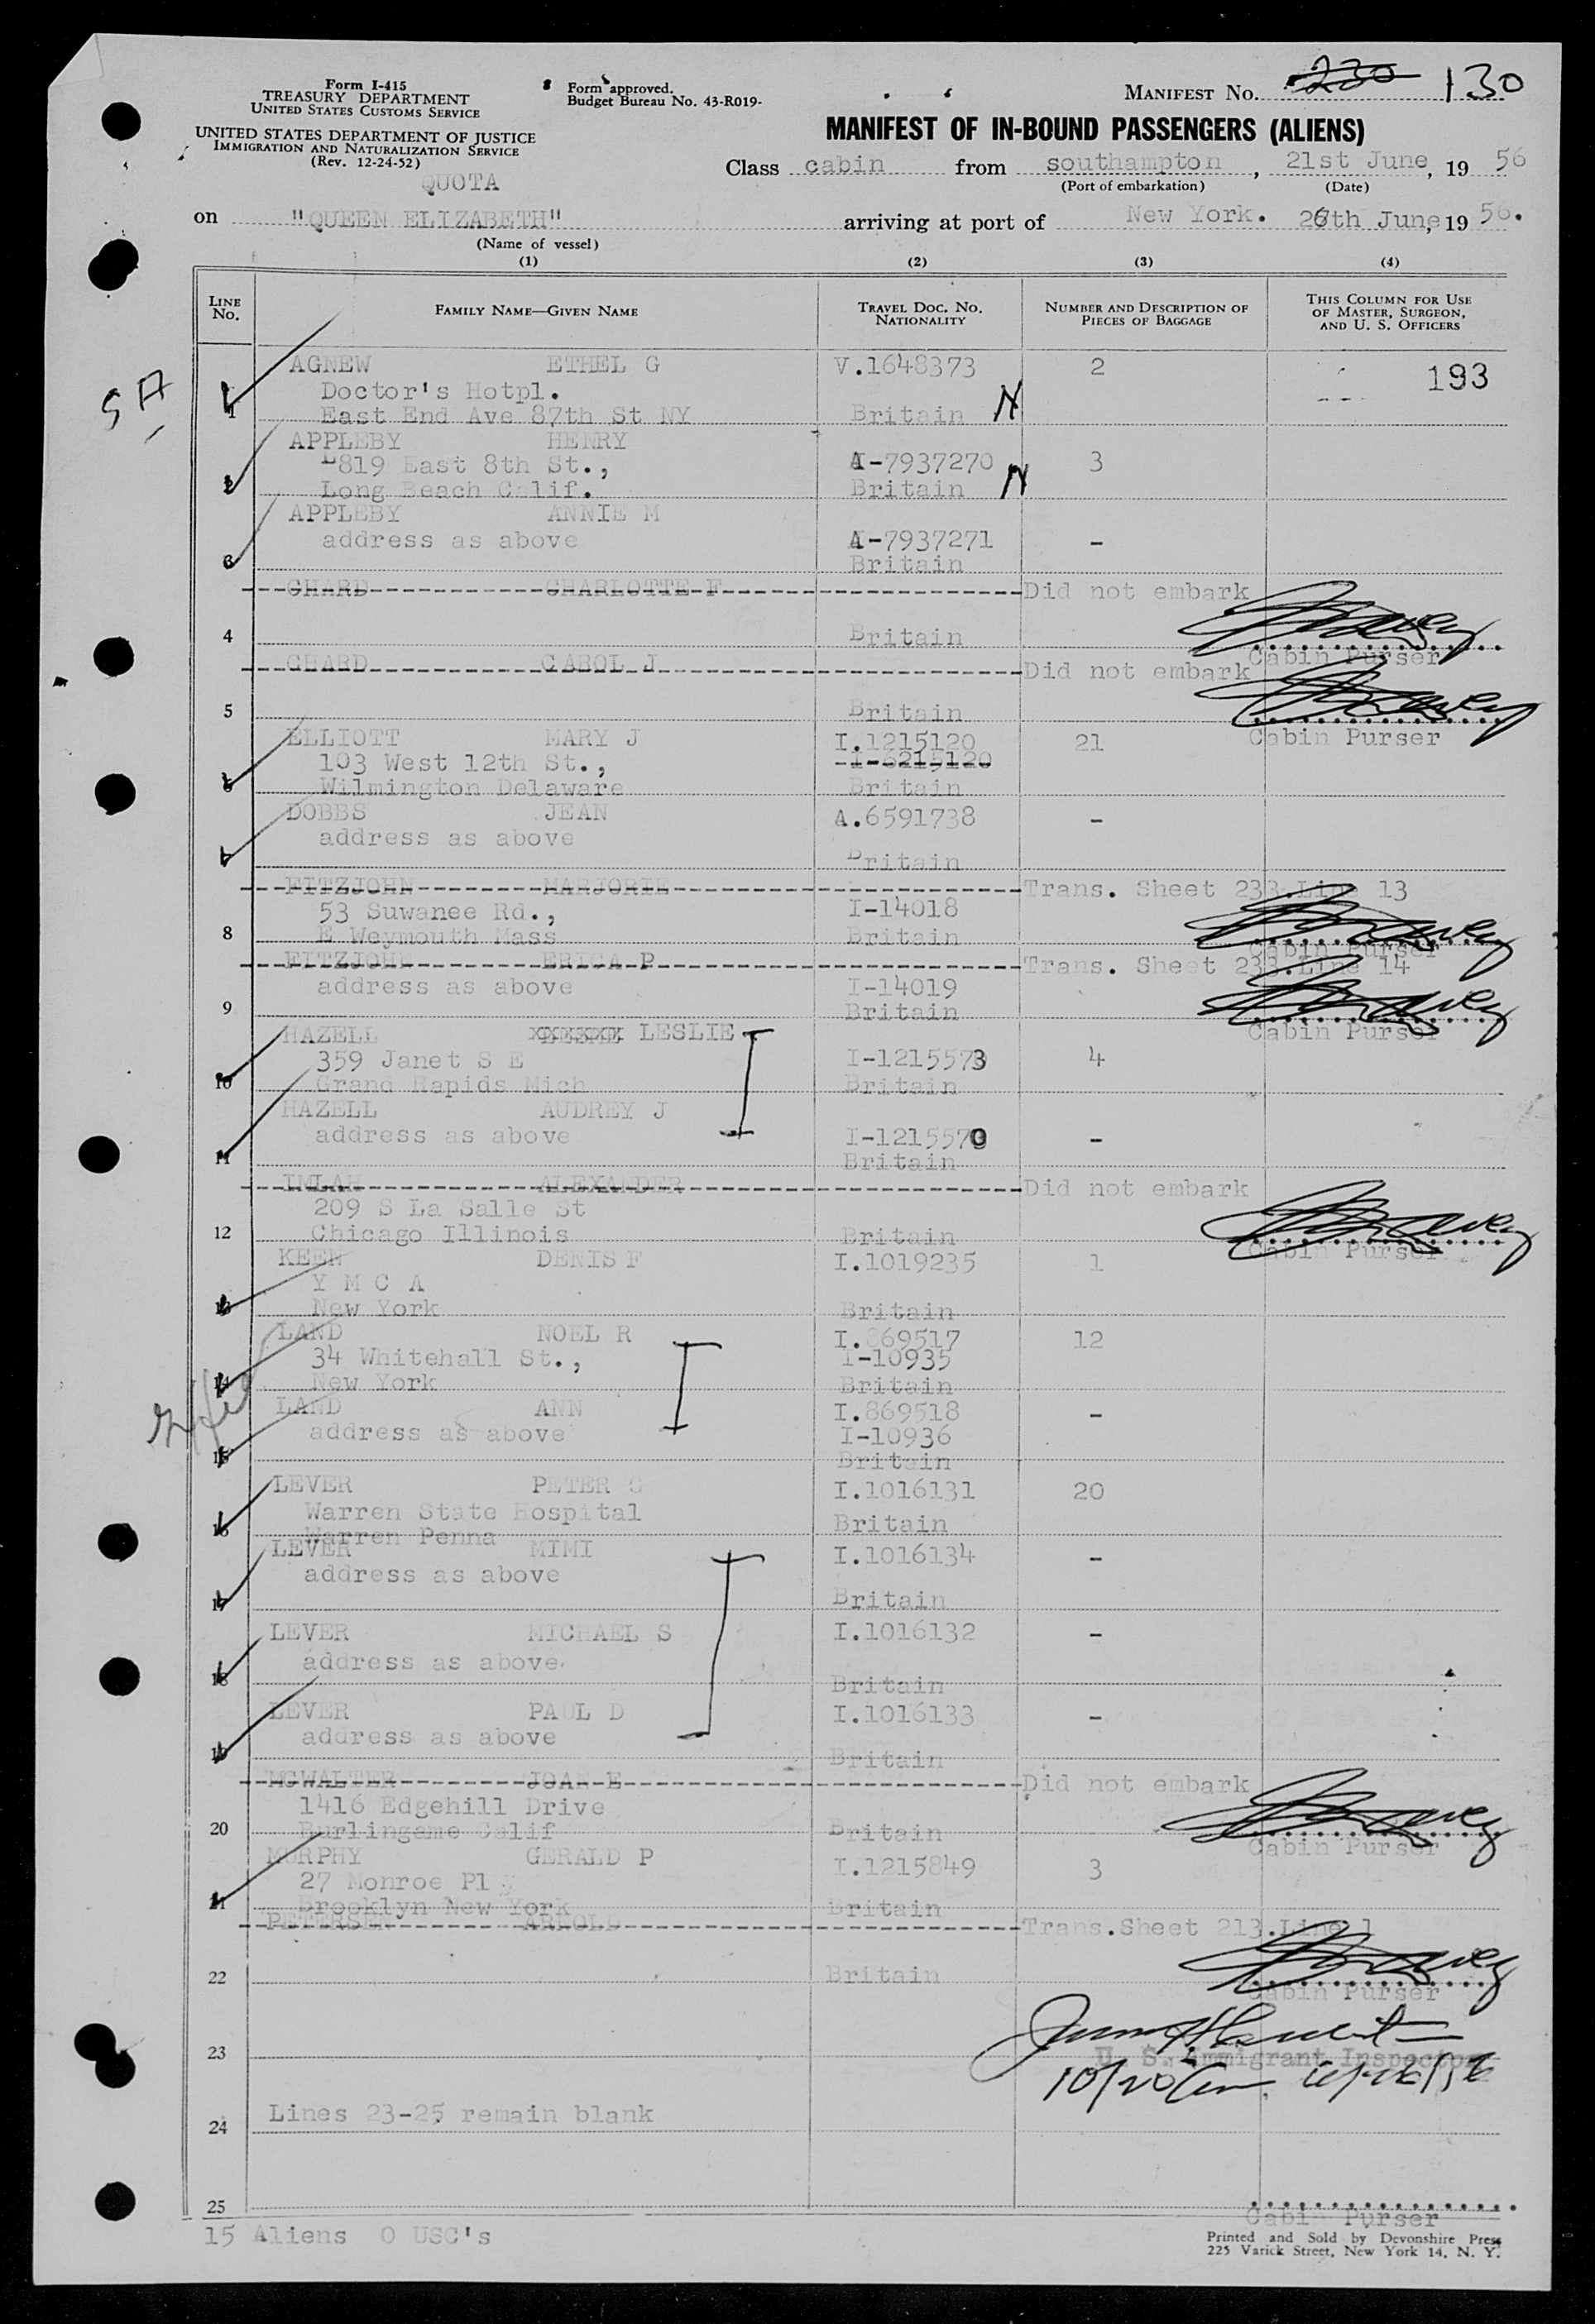 Form I-415
TREASURY DEPARTMENT
UNITED STATES CUSTOMS SERVICE
UNITED STATES DEPARTMENT OF JUSTICE
IMMIGRATION AND NATURALIZATION SERVICE
(Rev. 12-24-52)
QUOTA
Form approved.
Budget Bureau No. 43-R019-
MANIFEST NO. 230 130
MANIFEST OF IN-BOUND PASSENGERS (ALIENS)
Class cabin from southampton, 21st June, 19 56
(Port of embarkation) (Date)
on "QUEEN ELIZABETH" arriving at port of New York. 26th June, 19 56.
(Name of vessel)
(1) (2) (3) (4)
LINE NO. FAMILY NAME—GIVEN NAME TRAVEL DOC. NO. NATIONALITY NUMBER AND DESCRIPTION OF PIECES OF BAGGAGE THIS COLUMN FOR USE OF MASTER, SURGEON, AND U. S. OFFICERS
SA
AGNEW ETHEL G V.1648373 2 193
Doctor's Hotpl.
1 East End Ave 87th St NY Britain N
APPLEBY HENRY
819 East 8th St., A-7937270 3
2 Long Beach Calif. Britain N
APPLEBY ANNIE M
address as above A-7937271 -
3 Britain
CHARD CHARLOTTE F Did not embark
4 Britain
Cabin Purser
CHARD CAROL J Did not embark
5 Britain
Cabin Purser
ELLIOTT MARY J I.1215120 21
103 West 12th St., I-6215120
6 Wilmington Delaware Britain
DOBBS JEAN A.6591738 -
address as above
7 Britain
FITZJOHN MARJORIE Trans. Sheet 233.Line 13
53 Suwanee Rd., I-14018
8 E Weymouth Mass Britain
Cabin Purser
FITZJOHN ERICA P Trans. Sheet 233.Line 14
address as above I-14019
9 Britain
Cabin Purser
HAZELL LESLIE
359 Janet S E I-1215573 4
10 Grand Rapids Mich Britain
HAZELL AUDREY J
address as above I-1215570 -
11 Britain
IMLAH ALEXANDER Did not embark
209 S La Salle St
12 Chicago Illinois Britain
Cabin Purser
KEEN DENIS F I.1019235 1
Y M C A
13 New York Britain
LAND NOEL R I.869517 12
34 Whitehall St., I-10935
14 New York Britain
LAND ANN I.869518 -
address as above I-10936
15 Britain
LEVER PETER G I.1016131 20
Warren State Hospital
16 Warren Penna Britain
LEVER MIMI I.1016134 -
address as above
17 Britain
LEVER MICHAEL S I.1016132 -
address as above
18 Britain
LEVER PAUL D I.1016133 -
address as above
19 Britain
MCWALTER JOAN E Did not embark
1416 Edgehill Drive
20 Burlingame Calif Britain
Cabin Purser
MURPHY GERALD P I.1215849 3
27 Monroe Pl
21 Brooklyn New York Britain
PETERSEN ARNOLD Trans.Sheet 213.Line 1
22 Britain
Cabin Purser
23 U. S. Immigrant Inspector
24 Lines 23-25 remain blank
25
Cabin Purser
15 Aliens 0 USC's
Printed and Sold by Devonshire Press
225 Varick Street, New York 14, N. Y.